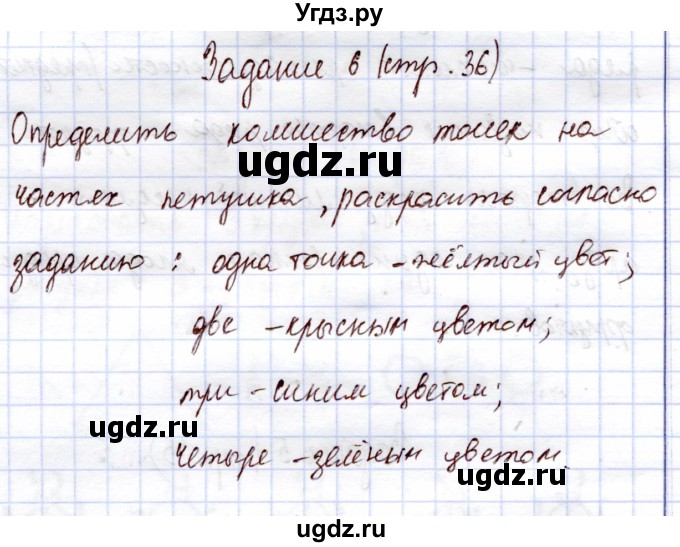 Угдз.ру
Задание 6 (стр. 36)
Определить количество точек на
ugdz.ru
ugdz.ru
частях петушка, раскрасить согласно
заданию: одна точка - жёлтый цвет;
две - крысным цветом;
ugdz.ru
три - синим цветом;
ugdz.ru
четыре - зелёным цветом.
ugdz.ru
ugdz.ru